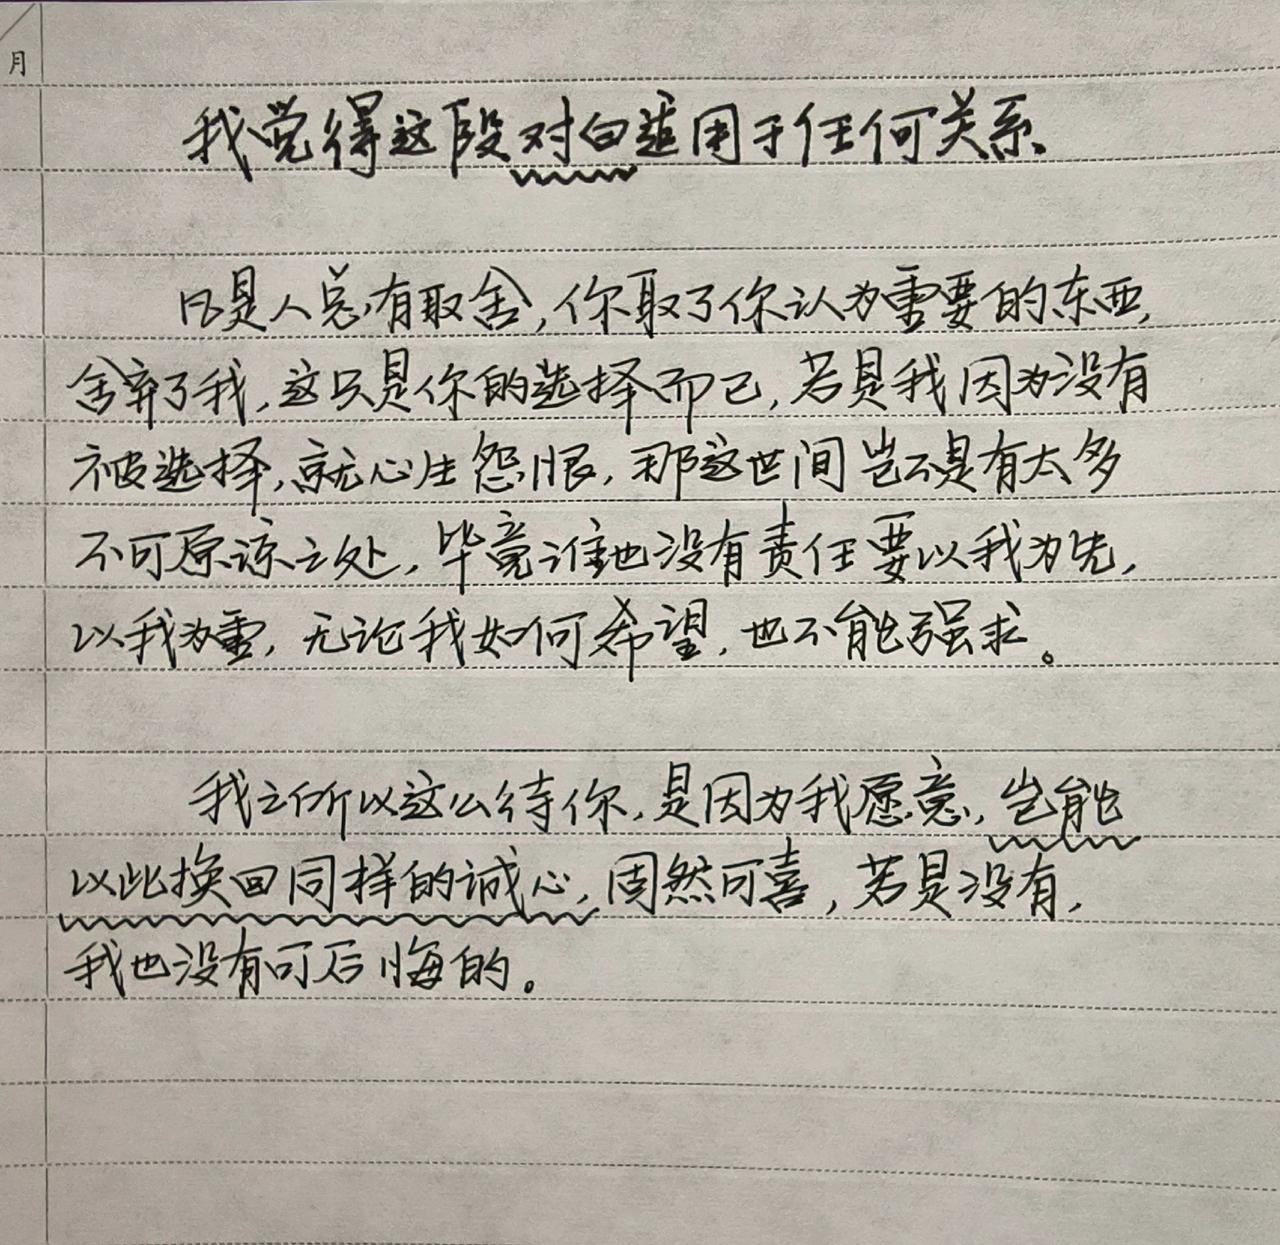 月
我觉得这段对白适用于任何关系
凡是人总有取舍,你取了你认为重要的东西,
舍弃了我,这只是你的选择而已,若是我因为没有
被选择,就心生怨恨,那这世间岂不是有太多
不可原谅之处,毕竟谁也没有责任要以我为先,
以我为重,无论我如何希望,也不能强求。
我之所以这么待你,是因为我愿意,岂能
以此换回同样的诚心,固然可喜,若是没有,
我也没有可后悔的。